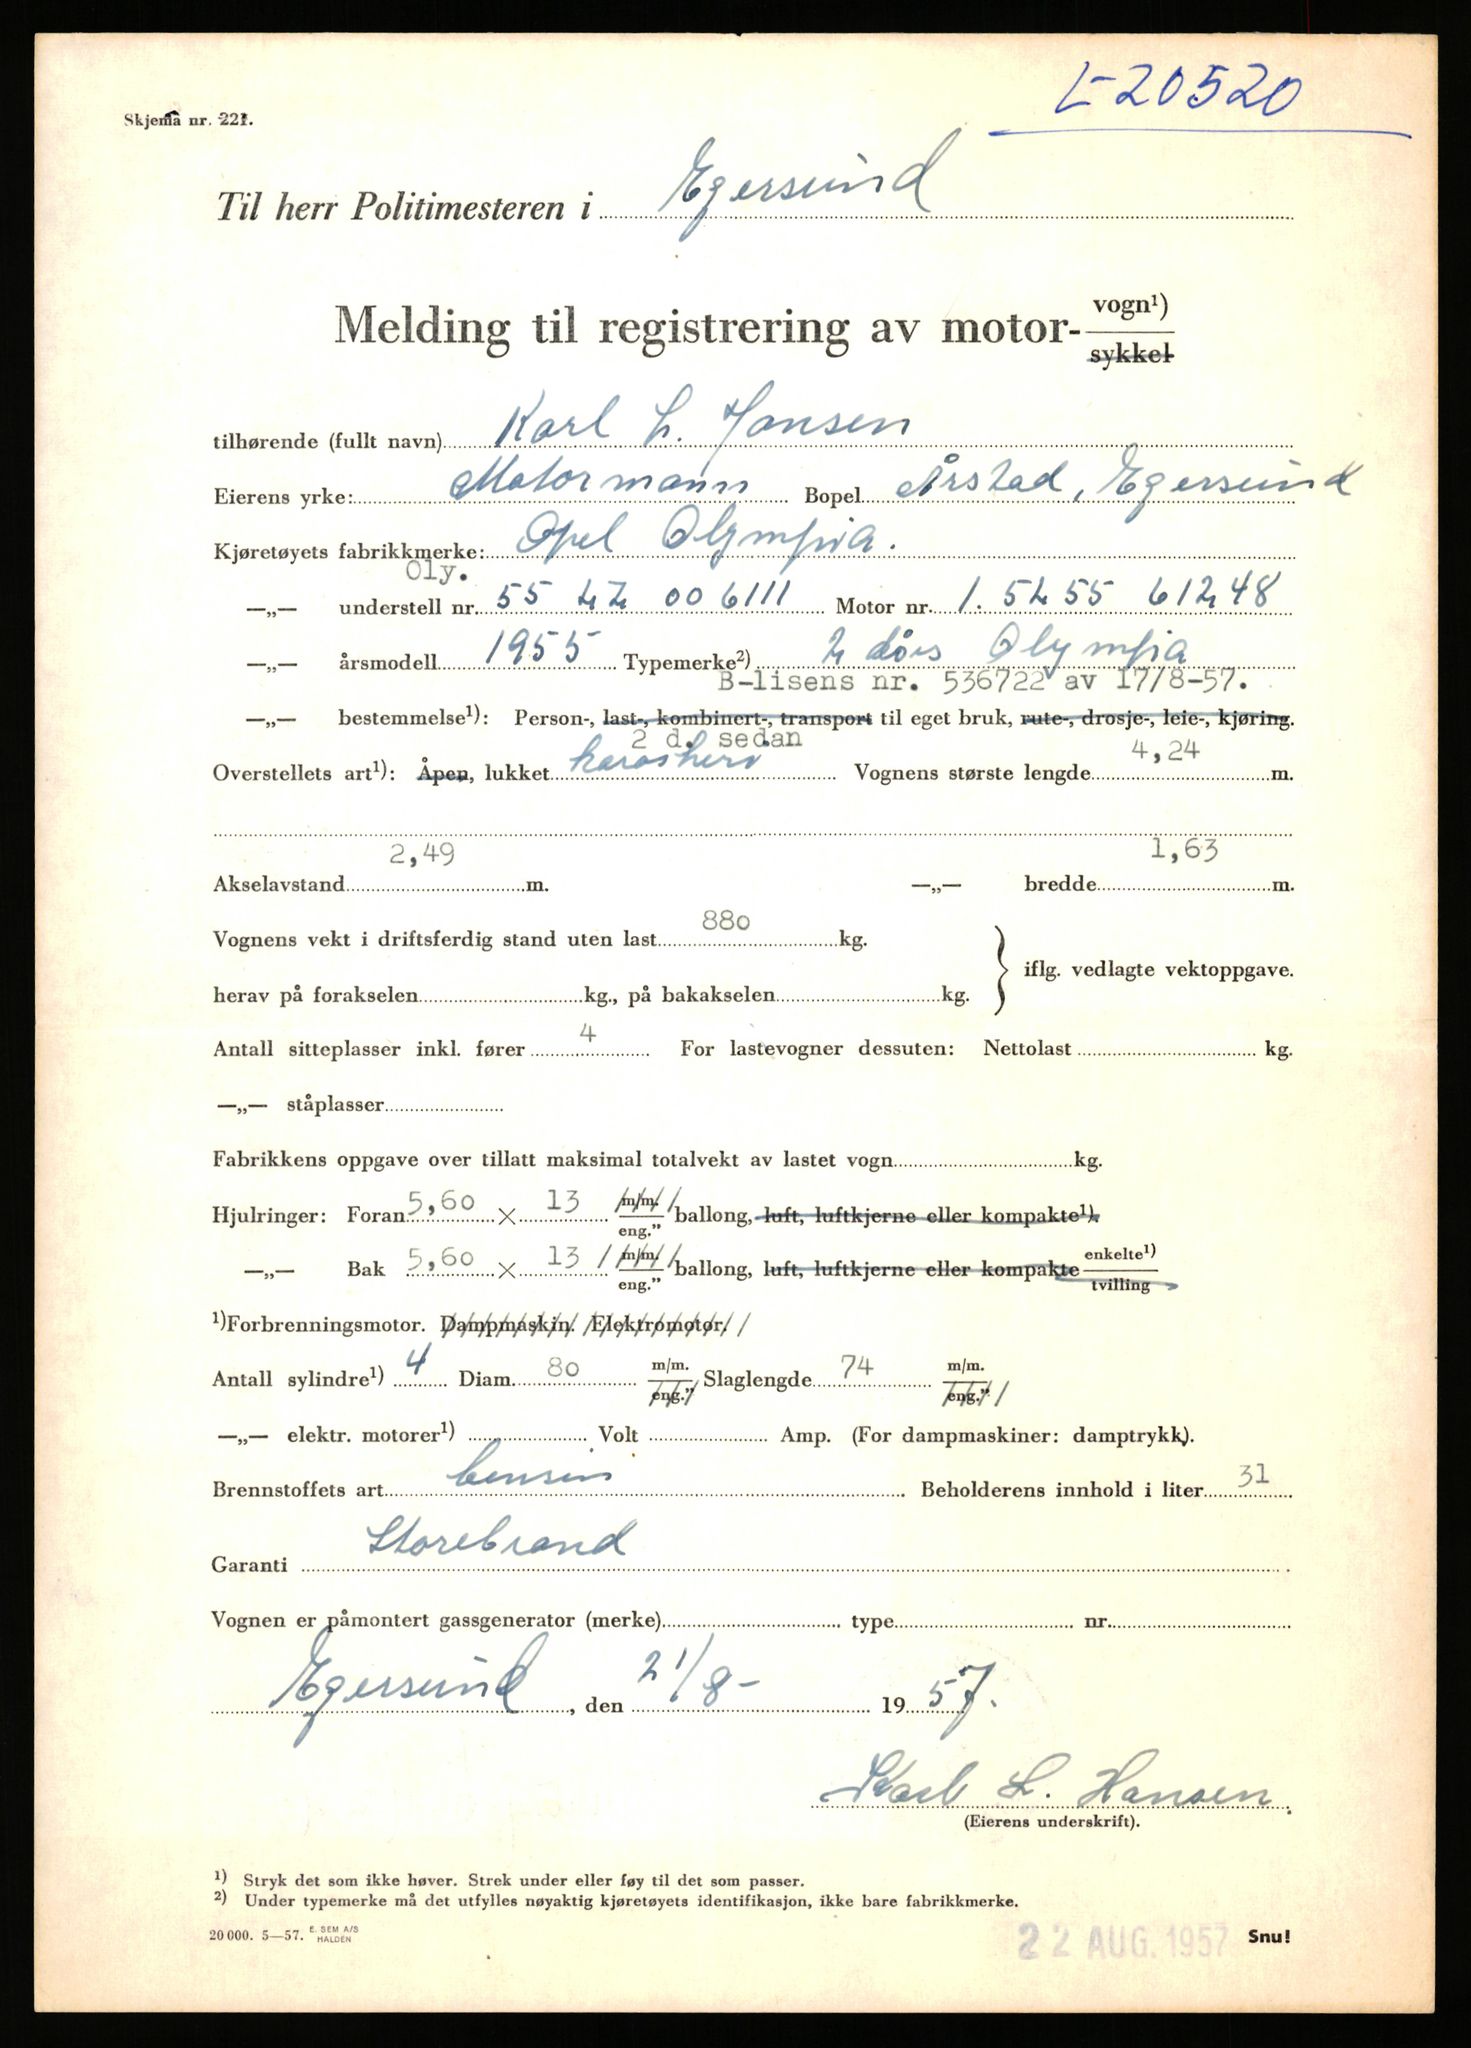 L-20520
Skjema nr. 221.
Til herr Politimesteren i Egersund
Melding til registrering av motor- vogn¹) sykkel
tilhørende (fullt navn) Karl L. Hansen
Eierens yrke: Motormann Bopel Årstad, Egersund
Kjøretøyets fabrikkmerke: Opel Olympia.
Oly.
—„— understell nr. 55 LZ 006111 Motor nr. 1.5L 55 61248
—„— årsmodell 1955 Typemerke²) 2 dørs Olympia
B-lisens nr. 536722 av 17/8-57.
—„— bestemmelse¹): Person-, last-, kombinert-, transport til eget bruk, rute-, drosje-, leie-, kjøring.
2 d. sedan
Overstellets art¹): Åpen, lukket karosseri Vognens største lengde 4,24 m.
Akselavstand 2,49 m. —„— bredde 1,63 m.
Vognens vekt i driftsferdig stand uten last 880 kg.
iflg. vedlagte vektoppgave.
herav på forakselen kg., på bakakselen kg.
Antall sitteplasser inkl. fører 4 For lastevogner dessuten: Nettolast kg.
—„— ståplasser
Fabrikkens oppgave over tillatt maksimal totalvekt av lastet vogn kg.
Hjulringer: Foran 5,60 × 13 m/m. eng." ballong, luft, luftkjerne eller kompakte¹).
—„— Bak 5,60 × 13 m/m. eng." ballong, luft, luftkjerne eller kompakte enkelte¹) tvilling
¹)Forbrenningsmotor. Dampmaskin. Elektromotor.
Antall sylindre¹) 4 Diam. 80 m/m. eng." Slaglengde 74 m/m. eng."
—„— elektr. motorer¹) Volt Amp. (For dampmaskiner: damptrykk).
Brennstoffets art bensin Beholderens innhold i liter 31
Garanti Storebrand
Vognen er påmontert gassgenerator (merke) type nr.
Egersund, den 21/8- 1957.
Karl L. Hansen
(Eierens underskrift).
¹) Stryk det som ikke høver. Strek under eller føy til det som passer.
²) Under typemerke må det utfylles nøyaktig kjøretøyets identifikasjon, ikke bare fabrikkmerke.
20 000. 5—57. E. SEM A/S HALDEN
22 AUG. 1957 Snu!